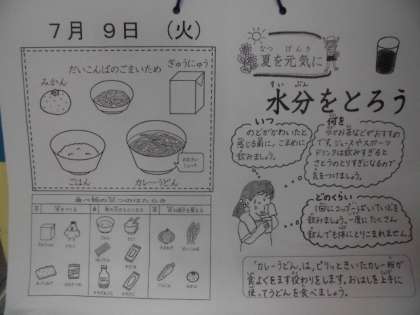 7月 9日 （火）
だいこんぱのごまいため
ぎゅうにゅう
みかん
ごはん
カレーうどん
なつ げんき
夏を元気に
すいぶん
水分をとろう
いつ
のどがかわいたと
感じる前に、こまめに
飲みましょう。
何を
水やお茶などがおすすめ
です。ジュースやスポーツ
ドリンクは飲みすぎると
さとうのとりすぎになるので
気をつけましょう。
どのくらい
1回にコップ一ぱいていどを
飲みましょう。一度にたくさん
飲んでも体にとりこまれません。
「カレーうどん」は、ピリッときいたカレー粉が
食よくをます役わりをします。おはしを上手に
使ってうどんを食べましょう。